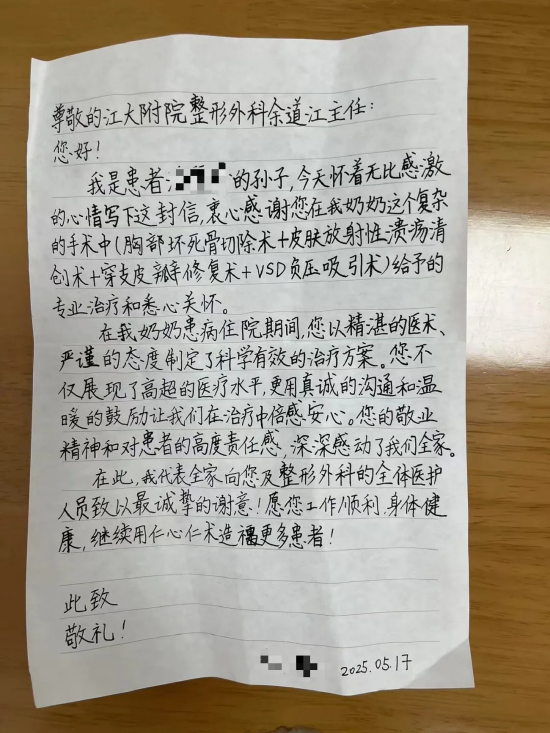 尊敬的江大附院整形外科余道江主任：
您好！
我是患者: 的孙子,今天怀着无比感激
的心情写下这封信,衷心感谢您在我奶奶这个复杂
的手术中(胸部坏死骨切除术+皮肤放射性溃疡清
创术+穿支皮瓣修复术+VSD负压吸引术)给予的
专业治疗和悉心关怀。
在我奶奶患病住院期间,您以精湛的医术、
严谨的态度制定了科学有效的治疗方案。您不
仅展现了高超的医疗水平,更用真诚的沟通和温
暖的鼓励让我们在治疗中倍感安心。您的敬业
精神和对患者的高度责任感,深深感动了我们全家。
在此,我代表全家向您及整形外科的全体医护
人员致以最诚挚的谢意!愿您工作顺利,身体健
康,继续用仁心仁术造福更多患者!
此致
敬礼!
2025.05.17